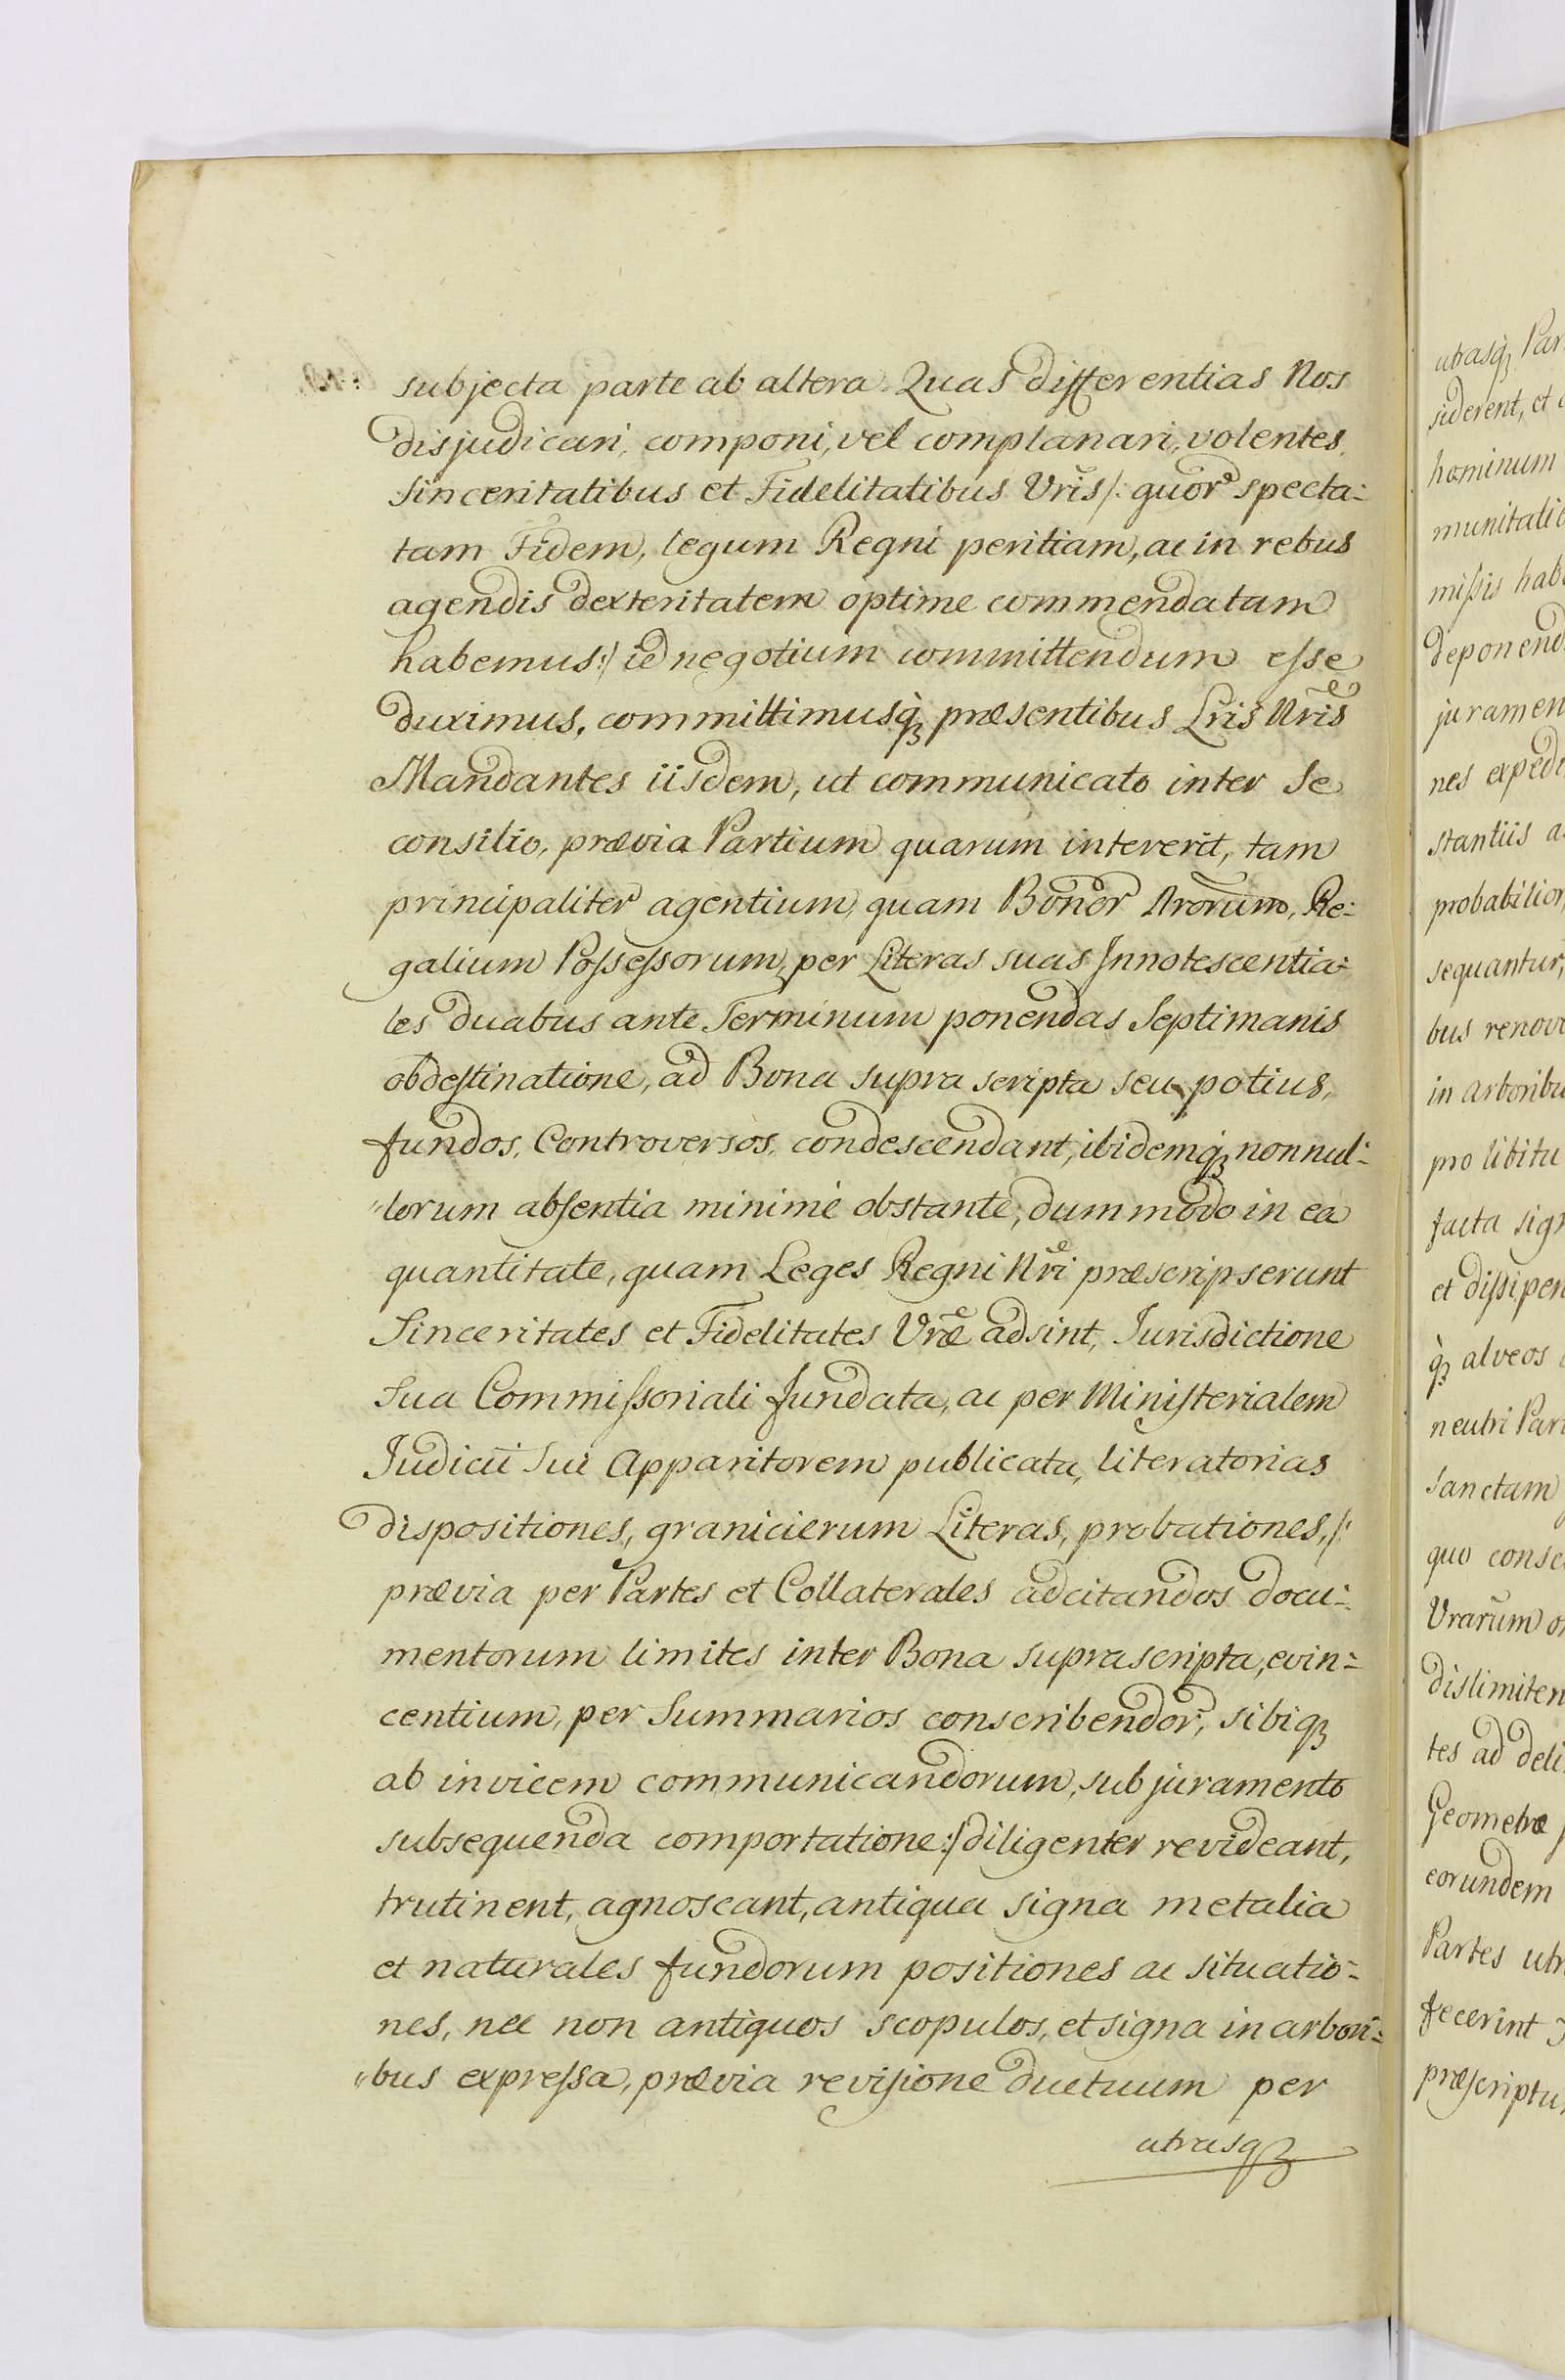 subjecta parte ab altera. Quas differentias Nos
disjudicari, componi, vel complanari, volentes,
Sinceritatibus et Fidelitatibus Vris /: quor specta:
tam Fidem, legum Regni peritiam, ac in rebus
agendis dexteritatem optime commendatam
habemus :/ id negotium committendum esse
duximus, committimusq; præsentibus Lris Nris
Mandantes iisdem, ut communicato inter se
consilio, prævia Partium quarum intererit, tam
principaliter agentium, quam Bonor Nrorum, Re:
galium Possessorum, per Literas suas Innotescentia:
les duabus ante Terminum ponendas Septimanis
obdestinatione, ad Bona supra scripta seu potius,
fundos, Controversos, condescendant, ibidemq; nonnul:
"lorum absentia minimè obstante, dummodo in ea
quantitate, quam Leges Regni Nri præscripserunt
Sinceritates et Fidelitates Vræ adsint, Jurisdictione
Sua Commissoriali fundata, ac per Ministerialem
Judicii Sui Apparitorem publicata, literatorias
dispositiones, granicierum Literas, probationes, /:
prævia per Partes et Collaterales adcitandos docu:
mentorum limites inter Bona suprascripta, evin:
centium, per Summarios conscribendor, sibiq;
ab invicem communicandorum, sub juramento
subsequenda comportatione :/ diligenter revideant,
trutinent, agnoscant, antiqua signa metalia
et naturales fundorum positiones ac situatio:
nes, nec non antiquos scopulos, et signa in arbori:
"bus expressa, prævia revisione ductuum per
utrasq;
utrasq; Par
siderent, et
hominum
munitatib
missis hab
deponend
juramen
nes expedi
stantiis a
probabilior
sequantur,
bus renov
in arboribu
pro libitu
facta sign
et dissipen
q; alveos
neutri Par
sanctam
quo conse
Vrarum o
dislimiten
tes ad deli
Geometræ
eorundem
Partes utr
fecerint
præscriptu